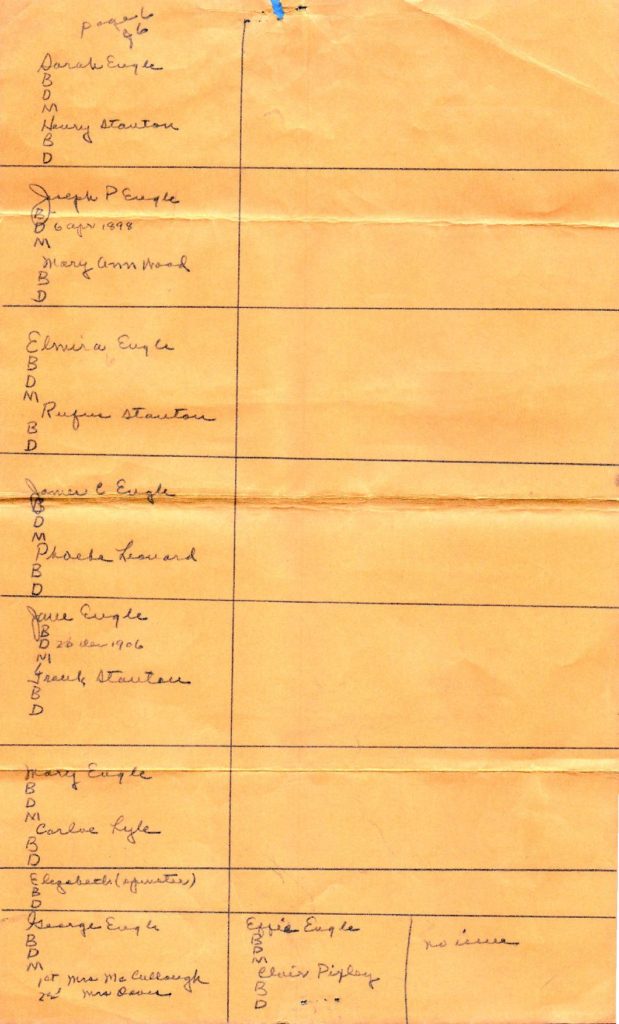 page 6
of 6
Sarah Eugle
B
D
M
Henry Stanton
B
D
Joseph P Eugle
B
D 6 apr 1898
M
Mary Ann Wood
B
D
Elmira Eugle
B
D
M
Rufus Stanton
B
D
James C Eugle
B
D
M
Phoebe Leonard
B
D
Jane Eugle
B
D 1906
M
Frank Stanton
B
D
Mary Eugle
B
D
M
Lyle
B
D
Elizabeth (spinster)
B
D
George Eugle
B
D
M
1st Mrs McCullough
2nd Mrs Davis
Effie Eugle
B
D
M
Clair
B
D
no issue